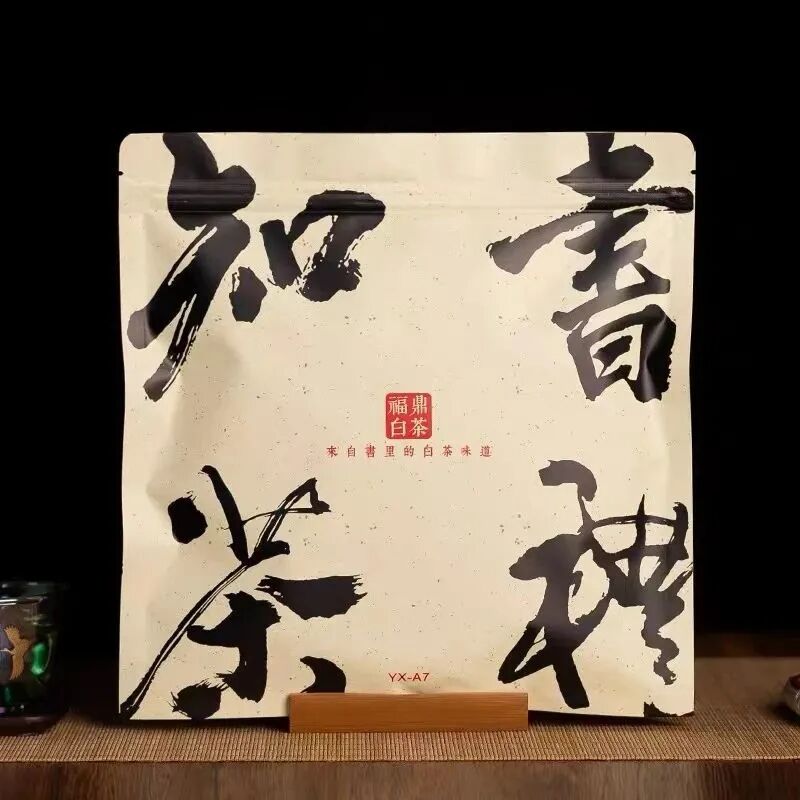 知書
福鼎
白茶
來自書里的白茶味道
茶禮
YX-A7